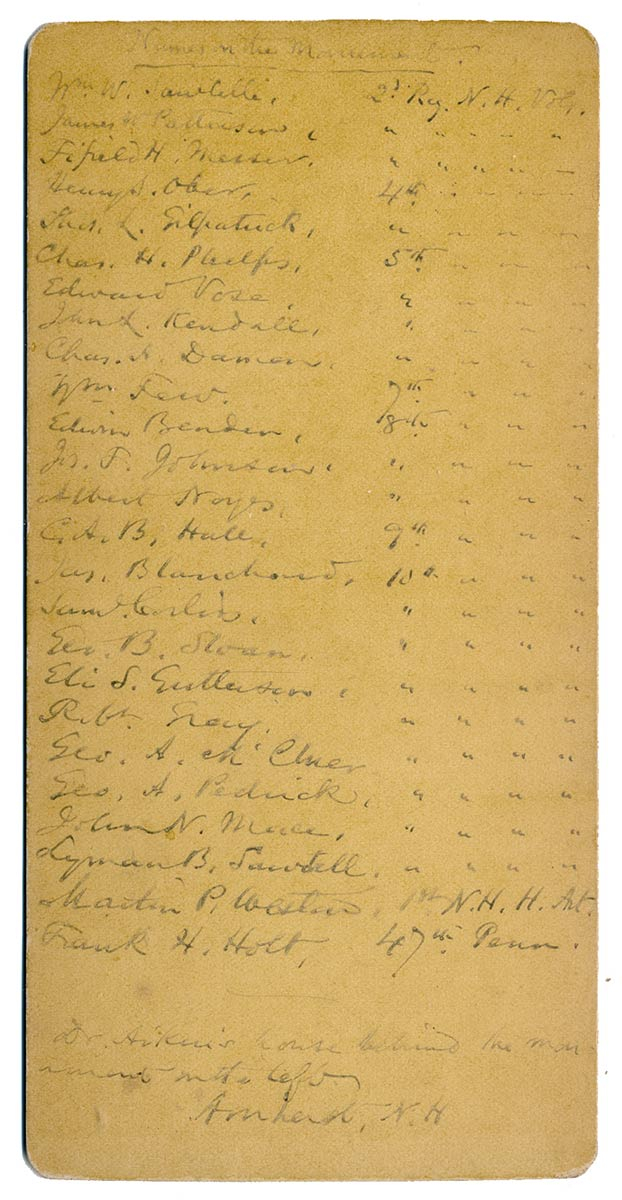 Names on the Monument
Wm. W. Sawtelle, 2d Reg. N. H. Vols.
James H. Patterson, " " " "
Fifield H. Messer. " " " " "
Henry S. Ober, 4th " " "
Thos. L. Gilpatrick, " " " "
Chas. H. Phelps, 5th " " "
Edward Vose, " " " "
John L. Kendall, " " " "
Chas. A. Damon, " " " "
Wm Few. 7th " " "
Edwin Benden, 8th " " "
Js. F. Johnson, " " " "
Albert Noyes, " " " "
C. A. B. Hall, 9th " " "
Jas. Blanchard, 10th " " "
Saml. Corlis, " " " "
Geo. B. Sloan, " " " "
Eli S. Gutterson, " " " "
Robt. Gray. " " " "
Geo. A. McCluer " " " "
Geo. A. Pedrick, " " " "
John N. Muce, " " " "
Lyman B. Sawtell, " " " "
Martin P. Weston, 1st N. H. H. Art.
Frank H. Holt, 47th Penn.
Dr. Aiken's house behind the mon-
ument on the left
Amherst, N. H